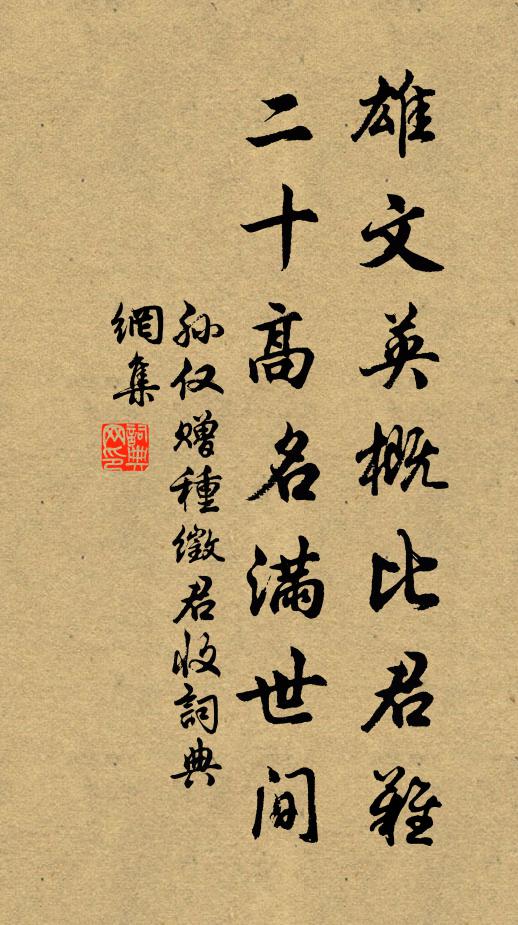 雄文英概比君難
二十高名滿世間
孙仅赠種徵君收詞典
網集
詞典网印